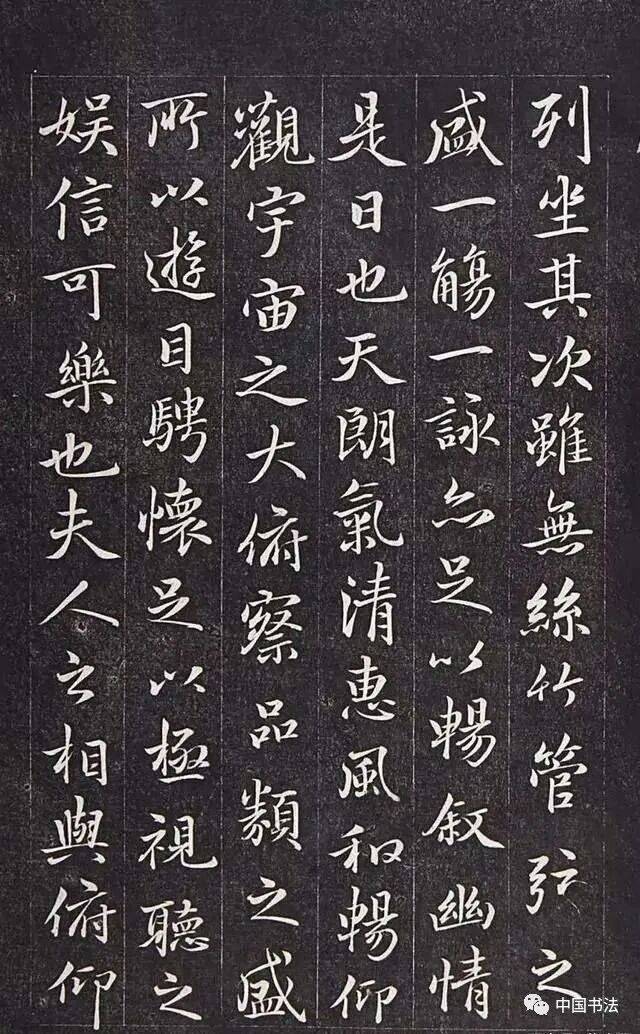 列坐其次雖無絲竹管弦之
盛一觴一詠亦足以暢叙幽情
是日也天朗氣清惠風和暢仰
觀宇宙之大俯察品類之盛
所以遊目騁懷足以極視聽之
娱信可樂也夫人之相與俯仰
中国书法